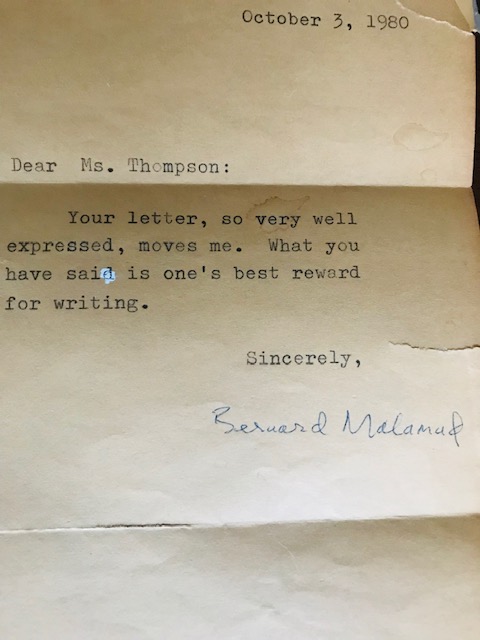 October 3, 1980
Dear Ms. Thompson:
Your letter, so very well
expressed, moves me. What you
have said is one's best reward
for writing.
Sincerely,
Bernard Malamud